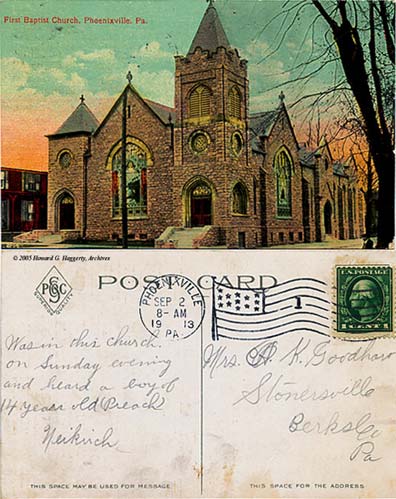 First Baptist Church, Phoenixville, Pa.
© 2005 Howard G. Haggerty, Archives
PSGC
SUPERIOR QUALITY
POST CARD
PHOENIXVILLE
SEP 2
8-AM
1913
PA.
1
1 CENT 1
Was in this church
on Sunday evening
and heard a boy of
14 years old Preach
Neikirch
Mrs. H. K. Goodhart
Stonersville
Berks Co
Pa
THIS SPACE MAY BE USED FOR MESSAGE
THIS SPACE FOR THE ADDRESS